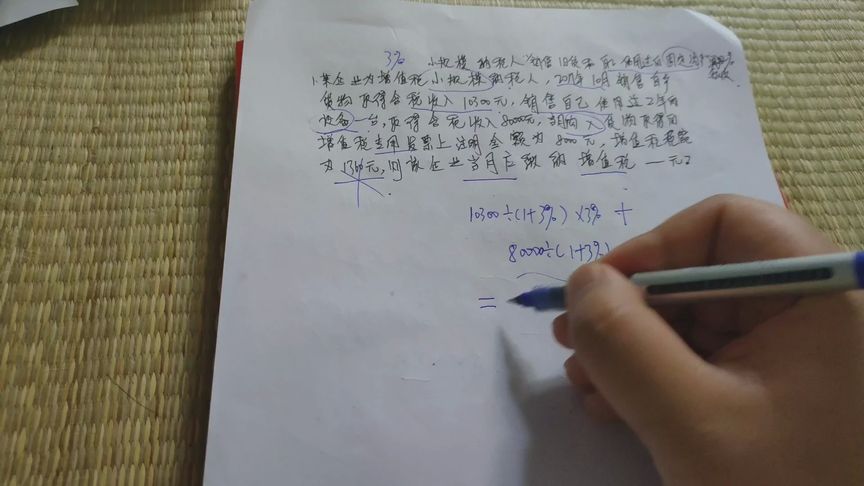 3% 小规模纳税人 销售旧货和 自己使用过的固定资产
1.某企业为增值税小规模纳税人,2017年10月销售自产
货物取得含税收入10300元,销售自己使用过2年的
设备一台,取得含税收入80000元,当月购入货物取得的
增值税专用发票上注明金额为8000元,增值税税额
为1360元,则该企业当月应缴纳增值税一元?
10300÷(1+3%)×3% +
80000÷(1+3%)
=